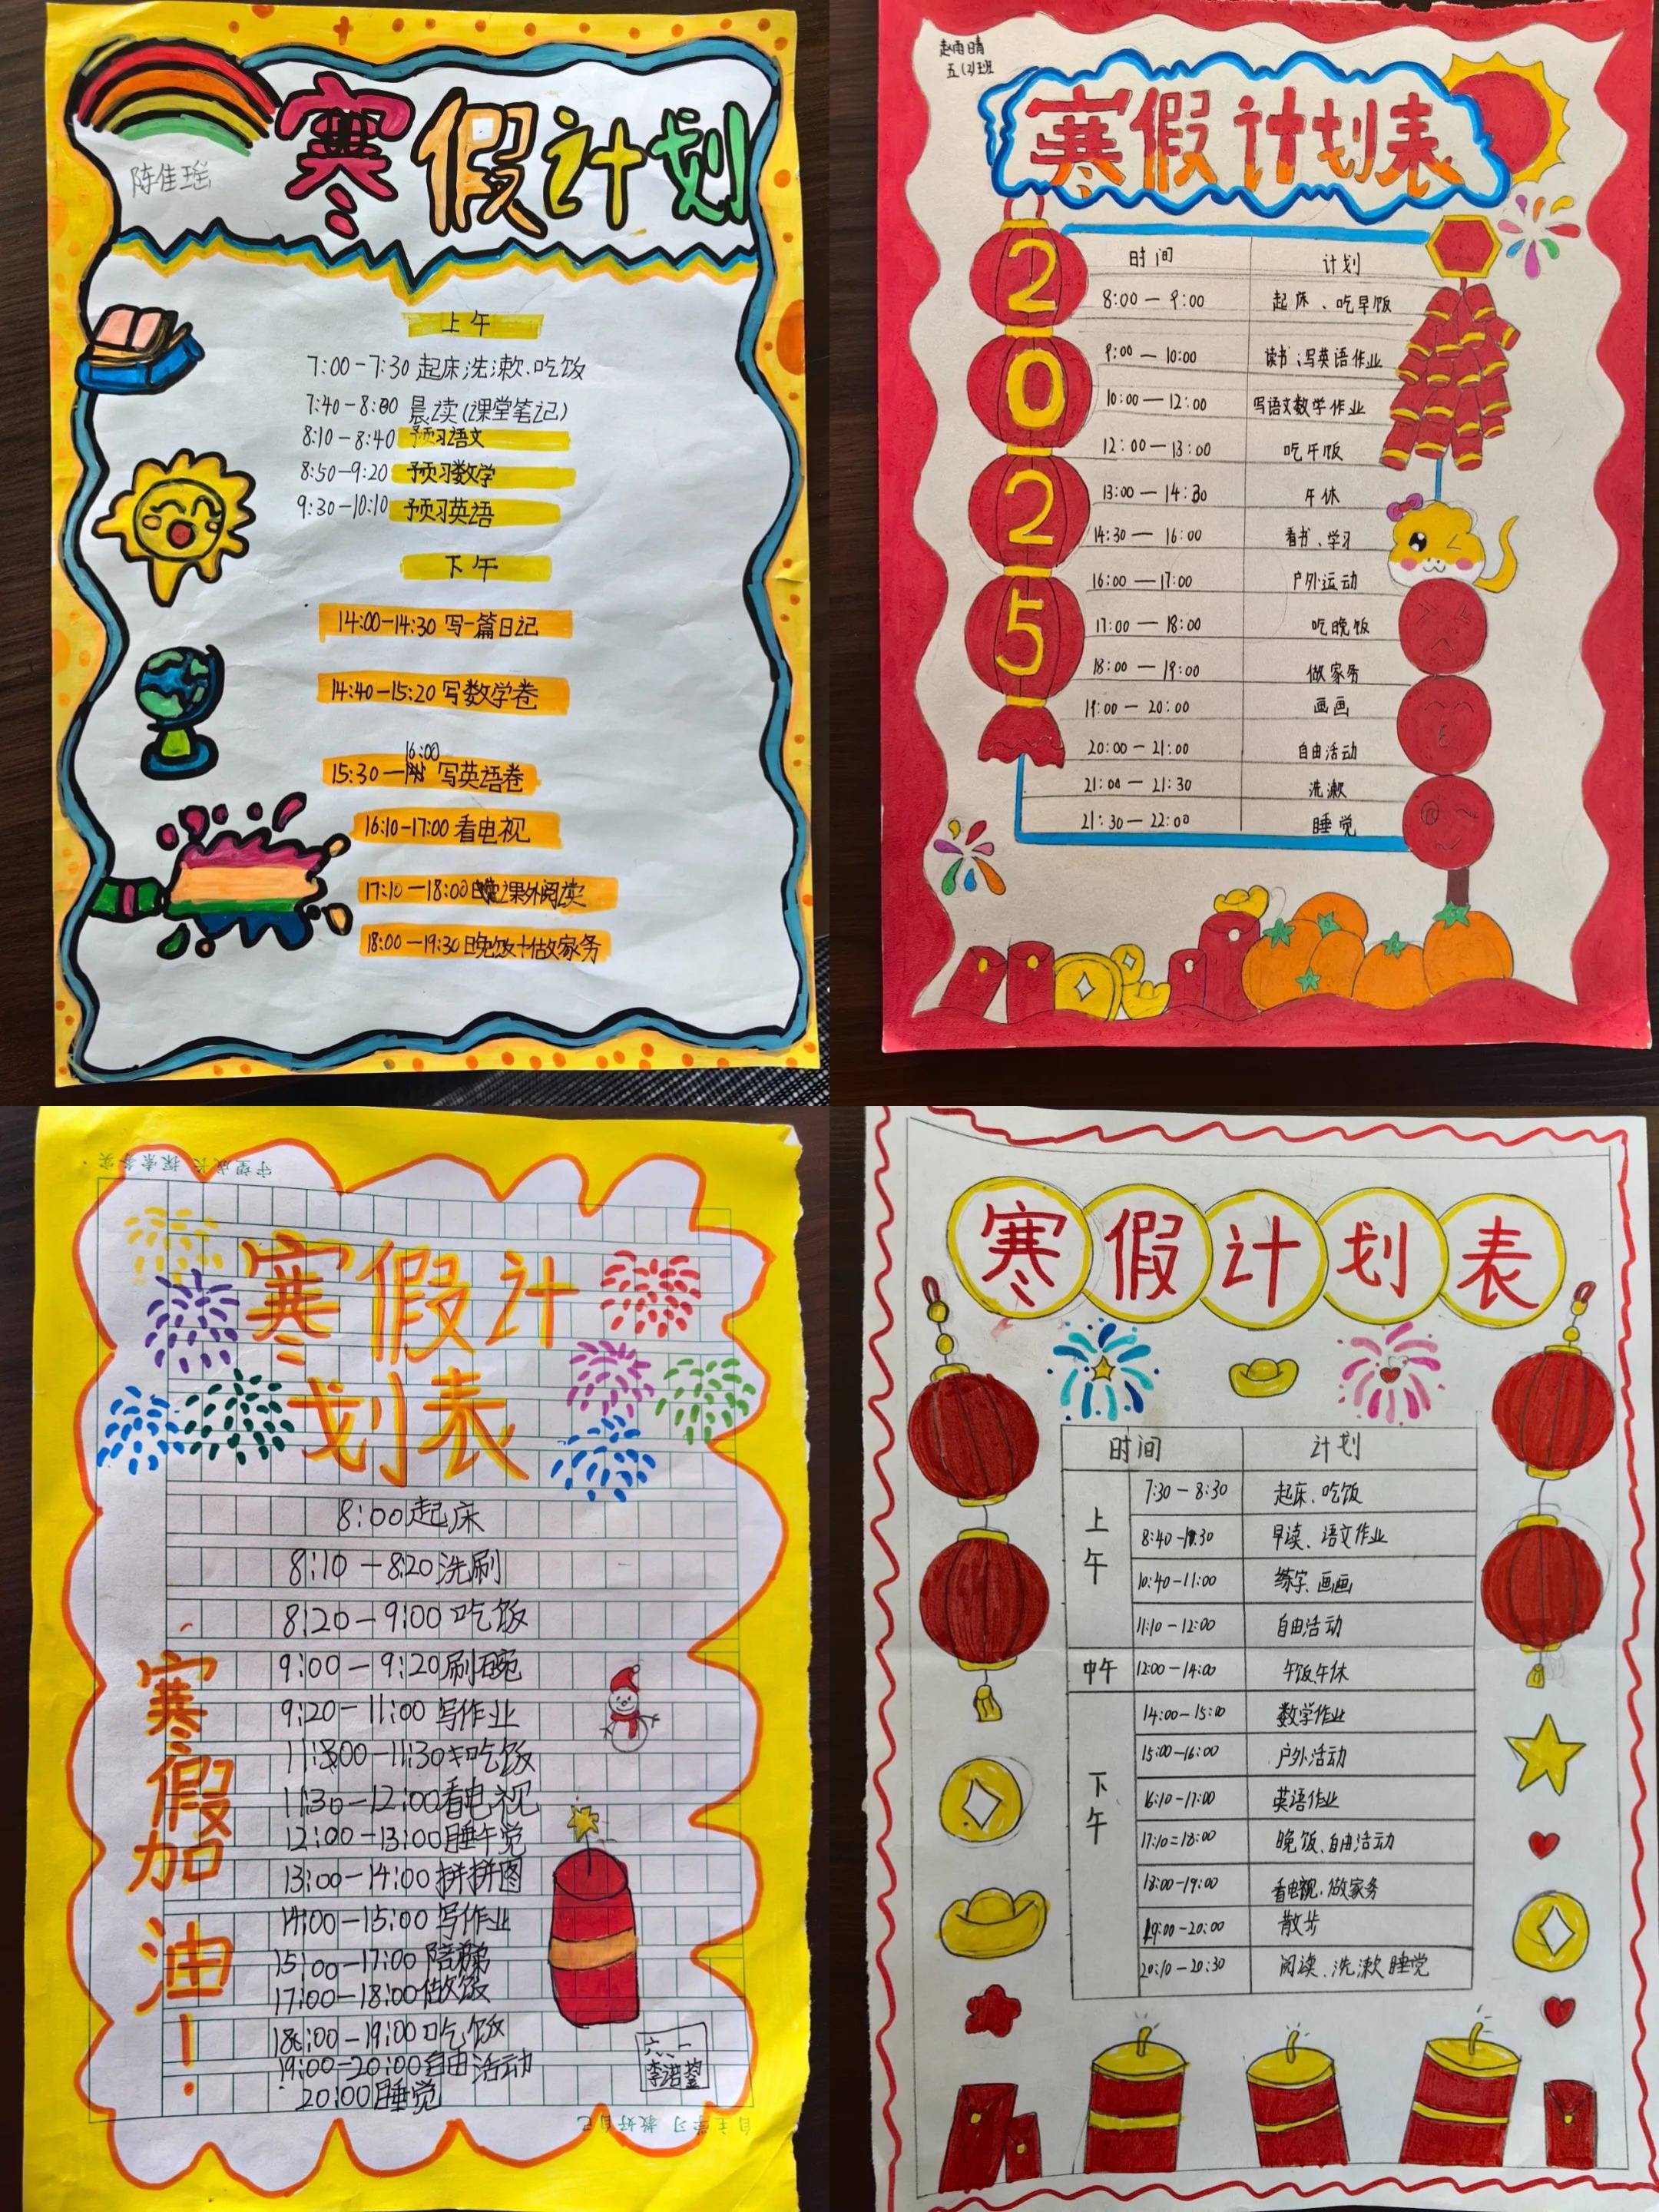 寒假计划
陈佳瑶
上午
7:00-7:30 起床洗漱、吃饭
7:40-8:00 晨读(课堂笔记)
8:10-8:40 预习语文
8:50-9:20 预习数学
9:30-10:10 预习英语
下午
14:00-14:30 写一篇日记
14:40-15:20 写数学卷
15:30—16:00 写英语卷
16:10-17:00 看电视
17:10-18:00 课外阅读
18:00-19:30 晚饭+做家务
赵雨晴
五(2)班
寒假计划表
2025
时间 计划
8:00—9:00 起床、吃早饭
9:00—10:00 读书、写英语作业
10:00—12:00 写语文数学作业
12:00—13:00 吃午饭
13:00—14:30 午休
14:30—16:00 看书、学习
16:00—17:00 户外运动
17:00—18:00 吃晚饭
18:00—19:00 做家务
19:00—20:00 画画
20:00—21:00 自由活动
21:00—21:30 洗漱
21:30—22:00 睡觉
守望成长 探索务实
寒假计
划表
8:00起床
8:10-8:20洗刷
8:20-9:00吃饭
9:00-9:20刷碗
9:20-11:00写作业
11:00-11:30吃饭
11:30-12:00看电视
12:00-13:00睡午觉
13:00-14:00拼拼图
14:00-15:00写作业
15:00-17:00陪
17:00-18:00做饭
18:00-19:00吃饭
19:00-20:00自由活动
20:00睡觉
寒假加油!
六、一
李
自主学习 教好自己
寒假计划表
时间 计划
上午
7:30-8:30 起床、吃饭
8:40- 早读、语文作业
10:40-11:00 练字、画画
11:10-12:00 自由活动
中午 12:00-14:00 午饭午休
下午
14:00-15:00 数学作业
15:00-16:00 户外活动
16:10-17:00 英语作业
17:10=18:00 晚饭、自由活动
18:00-19:00 看电视、做家务
19:00-20:00 散步
20:10-20:30 阅读、洗漱睡觉